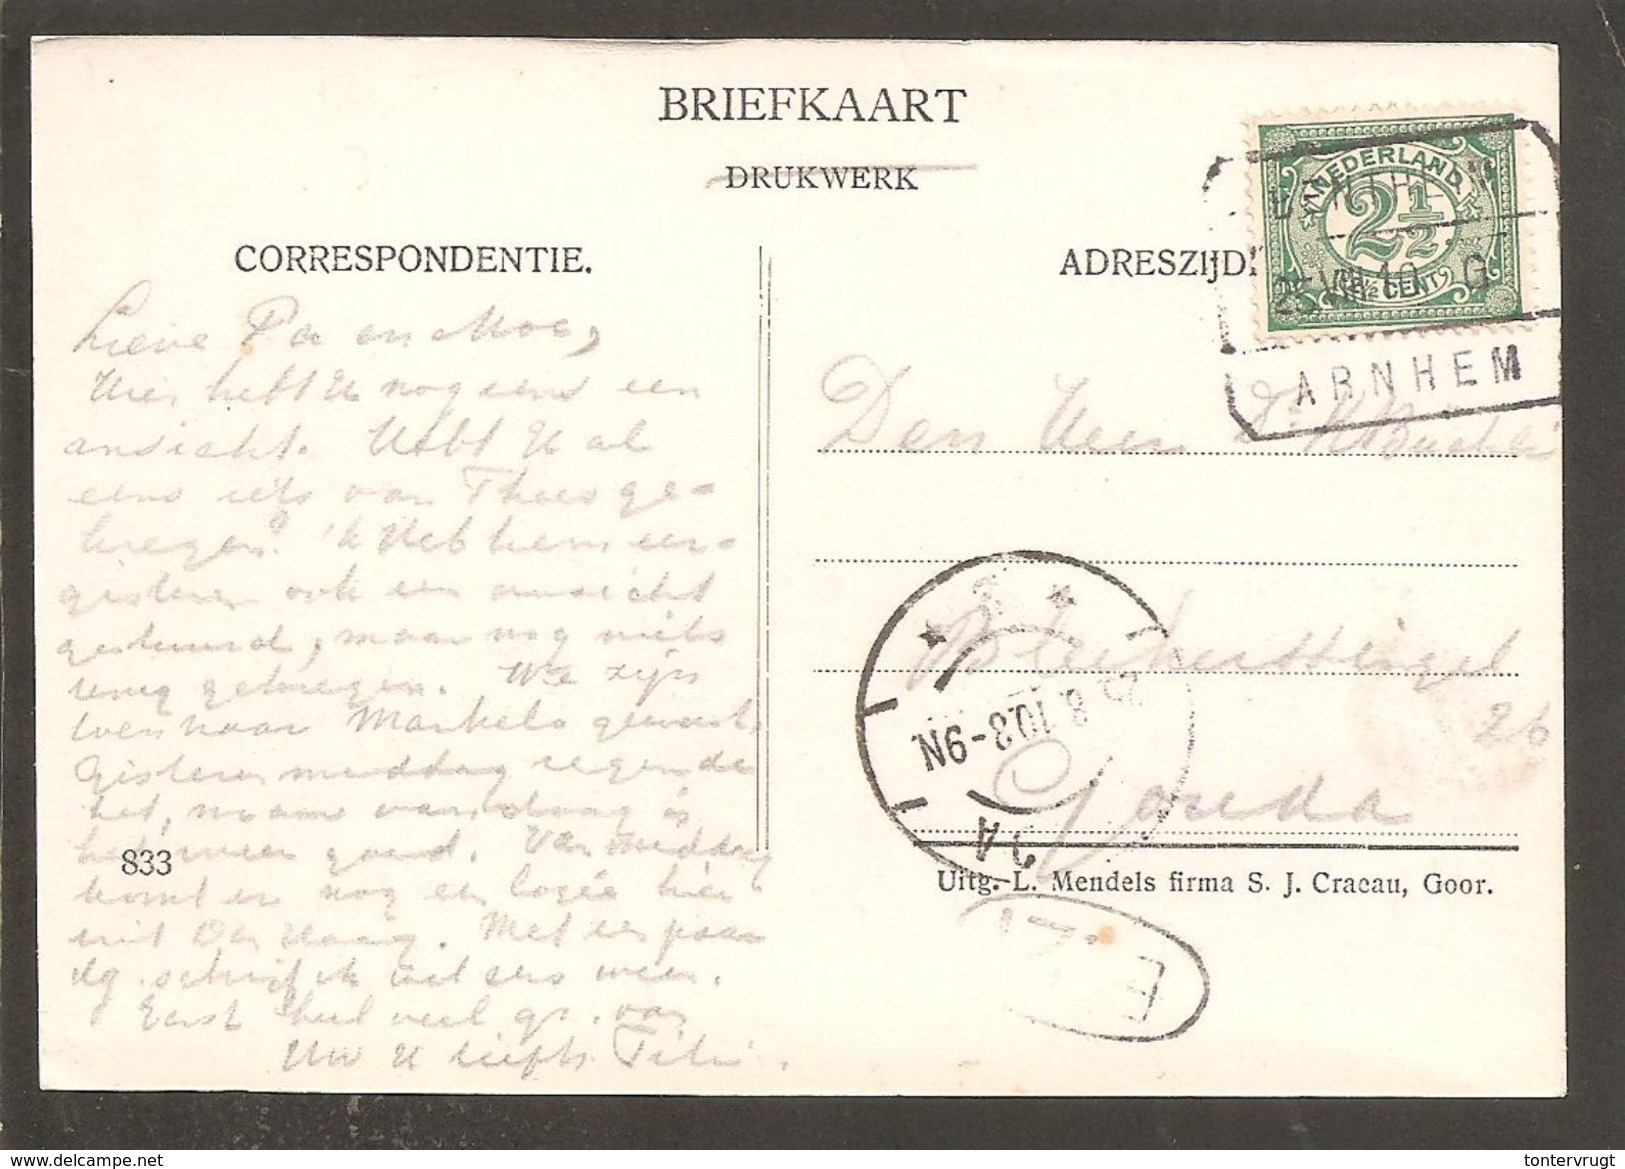 BRIEFKAART
DRUKWERK
CORRESPONDENTIE.
ADRESZIJD
NEDERLAND
2½
2½ CENT
VIII 10 G
ARNHEM
Lieve Pa en Moe,
Hier hebt U nog eens een
ansicht. Hebt U al
eens iets van Thees ge-
kregen? 'k Heb hem eer-
gisteren ook een ansicht
gestuurd, maar nog niets
terug gekregen. We zijn
naar Markelo geweest,
Gisteren middag regende
het, maar vandaag is
het weer goed. Van middag
komt er nog een logée hier
uit Den Haag. Met een paar
dg. schrijf ik wel eens weer.
Eerst heel veel gr. van
Uw U liefh.
Den Heer
26
Gouda
8.10.8-9N
833
Uitg. L. Mendels firma S. J. Cracau, Goor.
E
delcampe.net
tontervrugt